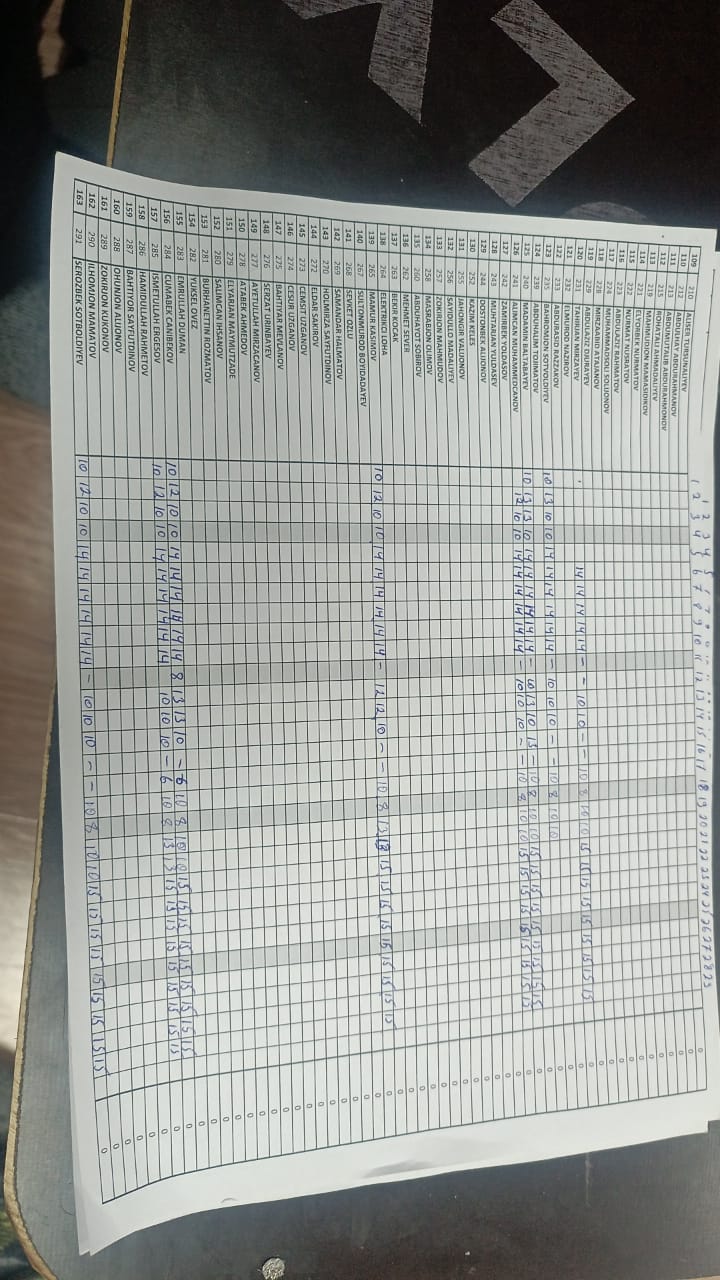 1 2 3 4 5 6 7 8 9
1 2 3 4 5 6 7 8 9 10 11 12 13 14 15 16 17 18 19 20 21 22 23 24 25 26 27 28 29
109 210 ALISER TURSUNALIYEV 0
110 212 ABDULHAY ABDURAHMANOV 0
111 213 ABDUMUTALIB ABDURAHMONOV 0
112 215 ROHATALI AHMADALIYEV 0
113 219 MAHMUDJON MAMASIDIKOV 0
114 221 ELYORBEK NURMATOV 0
115 222 NURMAT NUSRATOV 0
116 223 ABDULAZIZ RAHMATOV 0
117 224 MUHAMMADSOLI SOLIJONOV 0
118 228 MIRZAABID ATAJANOV 0
119 229 ABDULAZIZ DJURAYEV 0
120 231 TAHIRJAN MIRZAYEV 14 14 14 14 14 - - 10 10 - - 10 8 10 10 15 15 15 15 15 15 15 15 15 0
121 232 ELMUROD NAZIROV 0
122 233 ABDURASID RAZZAKOV 0
123 235 BAHROMJON SOTVOLDIYEV 10 13 10 10 14 14 14 14 14 14 - 10 10 10 - - 10 8 10 10 0
124 239 ABDUHALIM TOJIMATOV 0
125 240 MADAMIN BALTABAYEV 10 13 13 10 14 14 14 14 14 14 - 10 13 10 13 - 10 8 10 10 15 15 15 15 15 15 15 15 15 0
126 241 ALIMCAN MUHAMMEDCANOV 12 10 10 14 14 14 14 14 14 - 10 10 10 - - 10 8 10 10 15 15 15 15 15 15 15 15 15 0
127 242 ZAMIRBEK YOLDASOV 0
128 243 MUHTARJAN YULDASEV 0
129 244 DOSTONBEK ALIJONOV 0
130 252 KAZIM KELES 0
131 255 JAHONGIR VALIJONOV 0
132 256 SAYIDULLO MADALIYEV 0
133 257 ZOKIRJON MAHMUDOV 0
134 258 MASRABJON OLIMOV 0
135 260 ABDUHAYOT SOBIROV 0
136 262 MEHMET SEVER 0
137 263 BEKIR KOCAK 0
138 264 ELEKTRIKCI LOHA 0
139 265 MAMUR KASIMOV 10 12 10 10 14 14 14 14 14 14 - 12 12 10 - - 10 8 13 13 15 15 15 15 15 15 15 15 15 0
140 267 SULTONMUROD BOYIDADAYEV 0
141 268 SEVKET OZLU 0
142 269 SAMANDAR HALMATOV 0
143 270 HOLMIRZA SAYFUTDINOV 0
144 272 ELDAR SAKIROV 0
145 273 CEMSIT UZGANOV 0
146 274 CESUR UZGANOV 0
147 275 BAHTIYAR MEVLANOV 0
148 276 SERZAT URINBAYEV 0
149 277 AYETULLAH MIRZACANOV 0
150 278 ATABEK AHMEDOV 0
151 279 ELYARJAN MAYMUTZADE 0
152 280 SALIMCAN IHSANOV 0
153 281 BURHANETTIN ROZMATOV 0
154 282 YUKSEL OVEZ 0
155 283 EMRULLAH DUMAN 0
156 284 CUMABEK CANIBEKOV 10 12 10 10 14 14 14 14 14 14 8 13 13 10 - 6 10 8 10 10 15 15 15 15 15 15 15 15 15 0
157 285 ISMETULLAH ERGESOV 10 12 10 10 14 14 14 14 14 14 10 10 10 - 6 10 8 13 13 15 15 15 15 15 15 15 15 15 0
158 286 HAMIDULLAH RAHMETOV 0
159 287 BAHTIYOR SAYFUTDINOV 0
160 288 OHUNJON ALIJONOV 0
161 289 ZOKIRJON KUKONOV 0
162 290 ILHOMJON MAMATOV 0
163 291 SEROZBEK SOTBOLDIYEV 10 12 10 10 14 14 14 14 14 14 - 10 10 10 - - 10 8 10 10 15 15 15 15 15 15 15 15 15 0